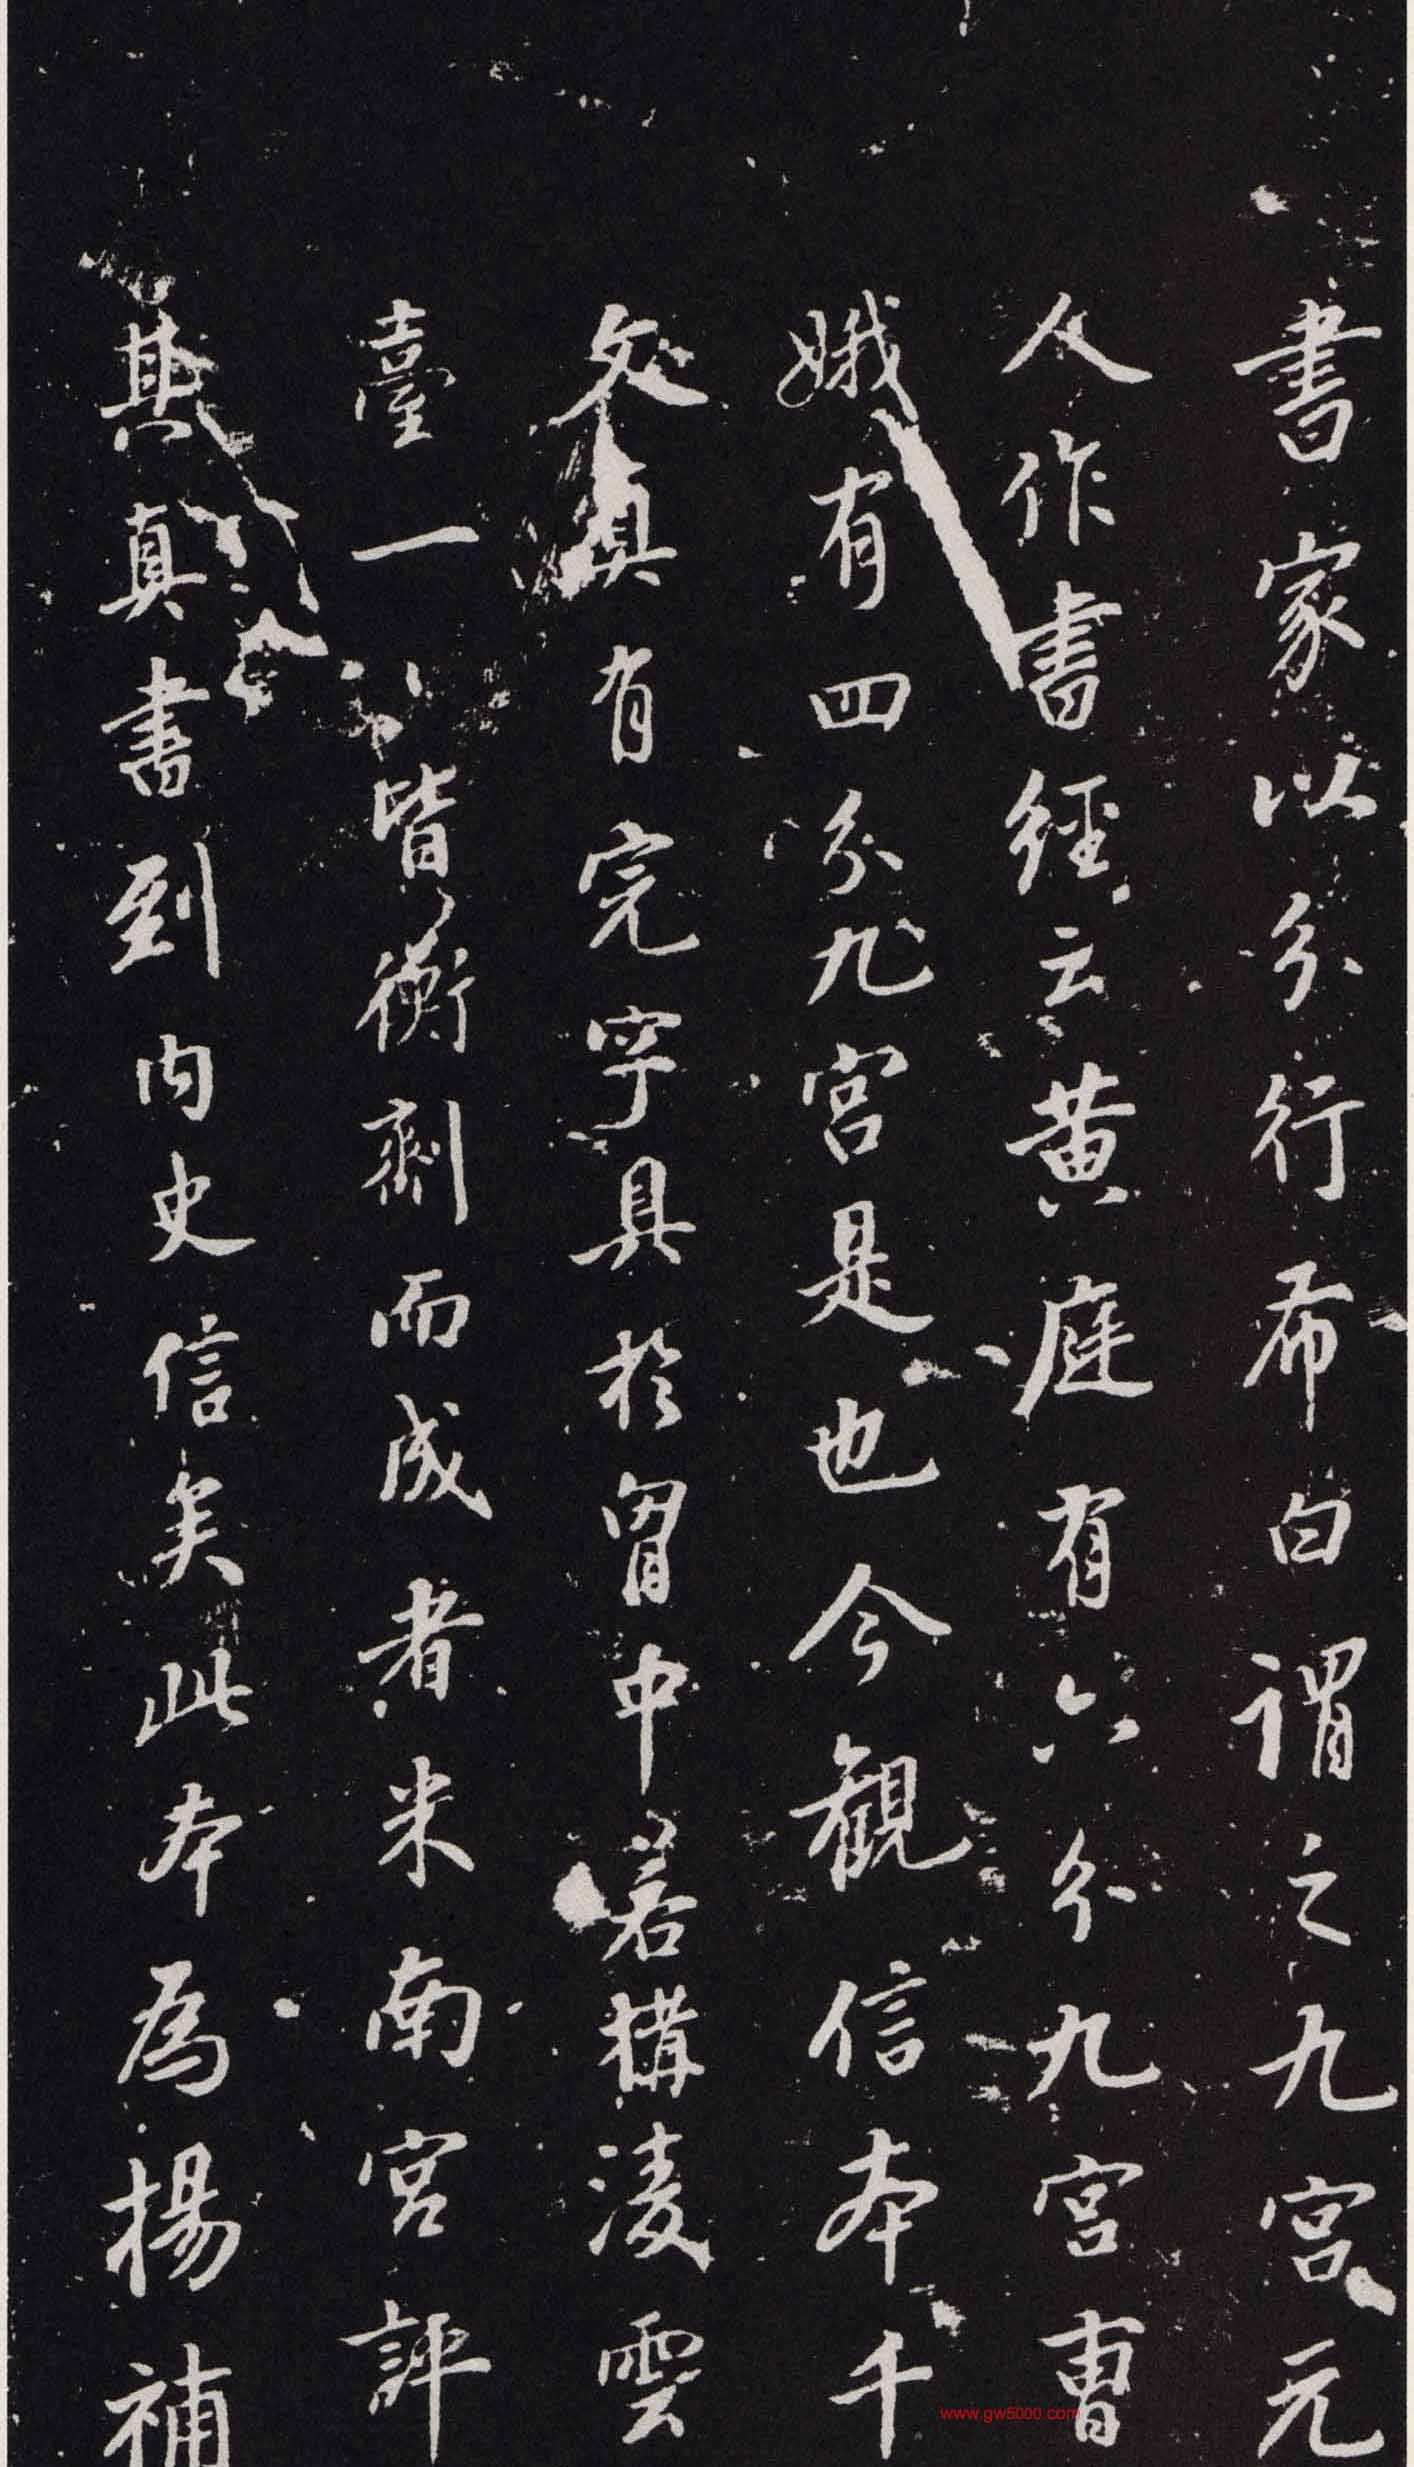 書家以分行希白謂之九宮元
人作書經云黃庭有六分九宮曹
娥有四分九宮是也今觀信本千
文真有完字具於胷中若構淩雲
臺一〻皆衡劑而成者米南宮評
其真書到內史信矣此本為楊補
www.gw5000.com